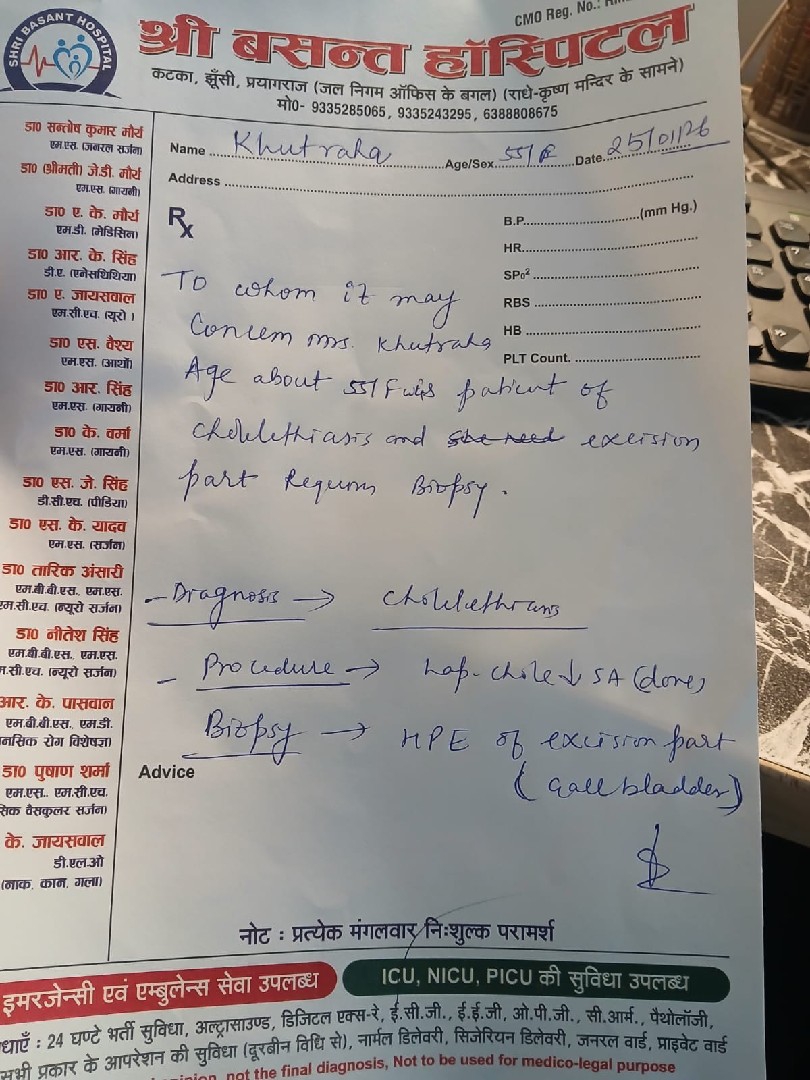 SHRI BASANT HOSPITAL
CMO Reg. No.:
श्री बसन्त हॉस्पिटल
कटका, झूँसी, प्रयागराज (जल निगम ऑफिस के बगल) (राधे-कृष्ण मन्दिर के सामने)
मो0- 9335285065, 9335243295, 6388808675
डा0 सन्तोष कुमार मौर्य
एम.एस. (जनरल सर्जन)
डा0 (श्रीमती) जे.डी. मौर्य
एम.एस. (गायनी)
डा0 ए. के. मौर्य
एम.डी. (मेडिसिन)
डा0 आर. के. सिंह
डी.ए. (एनेसथिथिया)
डा0 ए. जायसवाल
एम.सी.एच. (यूरो)
डा0 एस. वैश्य
एम.एस. (आर्थो)
डा0 आर. सिंह
एम.एस. (गायनी)
डा0 के. वर्मा
एम.एस. (गायनी)
डा0 एस. जे. सिंह
डी.सी.एच. (पीडिया)
डा0 एस. के. यादव
एम.एस. (सर्जन)
डा0 तारिक अंसारी
एम.बी.बी.एस. एम.एस.
एम.सी.एच. (न्यूरो सर्जन)
डा0 नीतेश सिंह
एम.बी.बी.एस. एम.एस.
एम.सी.एच. (न्यूरो सर्जन)
आर. के. पासवान
एम.बी.बी.एस. एम.डी.
नसिक रोग विशेषज्ञ)
डा0 पुषाण शर्मा
एम.एस.. एम.सी.एच.
सिक वैसकुलर सर्जन)
के. जायसवाल
डी.एल.ओ
(नाक, कान, गला)
Name Khutraha Age/Sex 55/F Date 25/01/26
Address
Rx
B.P. (mm Hg.)
HR.
SPo²
RBS
HB
PLT Count.
To whom it may
Concern mrs. Khutraha
Age about 55/F was patient of
cholelethiasis and she need excision
part Requrns Biopsy.
- Diagnosis → cholelethians
- Procedure → Lap. chole ↓ SA (done)
Biopsy → HPE of excision part
(Gall bladder)
Advice
नोट : प्रत्येक मंगलवार निःशुल्क परामर्श
इमरजेन्सी एवं एम्बुलेन्स सेवा उपलब्ध
ICU, NICU, PICU की सुविधा उपलब्ध
धाएँ : 24 घण्टे भर्ती सुविधा, अल्ट्रासाउण्ड, डिजिटल एक्स-रे, ई.सी.जी., ई.ई.जी, ओ.पी.जी., सी.आर्म., पैथोलॉजी,
सभी प्रकार के आपरेशन की सुविधा (दूरबीन विधि से), नार्मल डिलेवरी, सिजेरियन डिलेवरी, जनरल वार्ड, प्राइवेट वार्ड
not the final diagnosis, Not to be used for medico-legal purpose